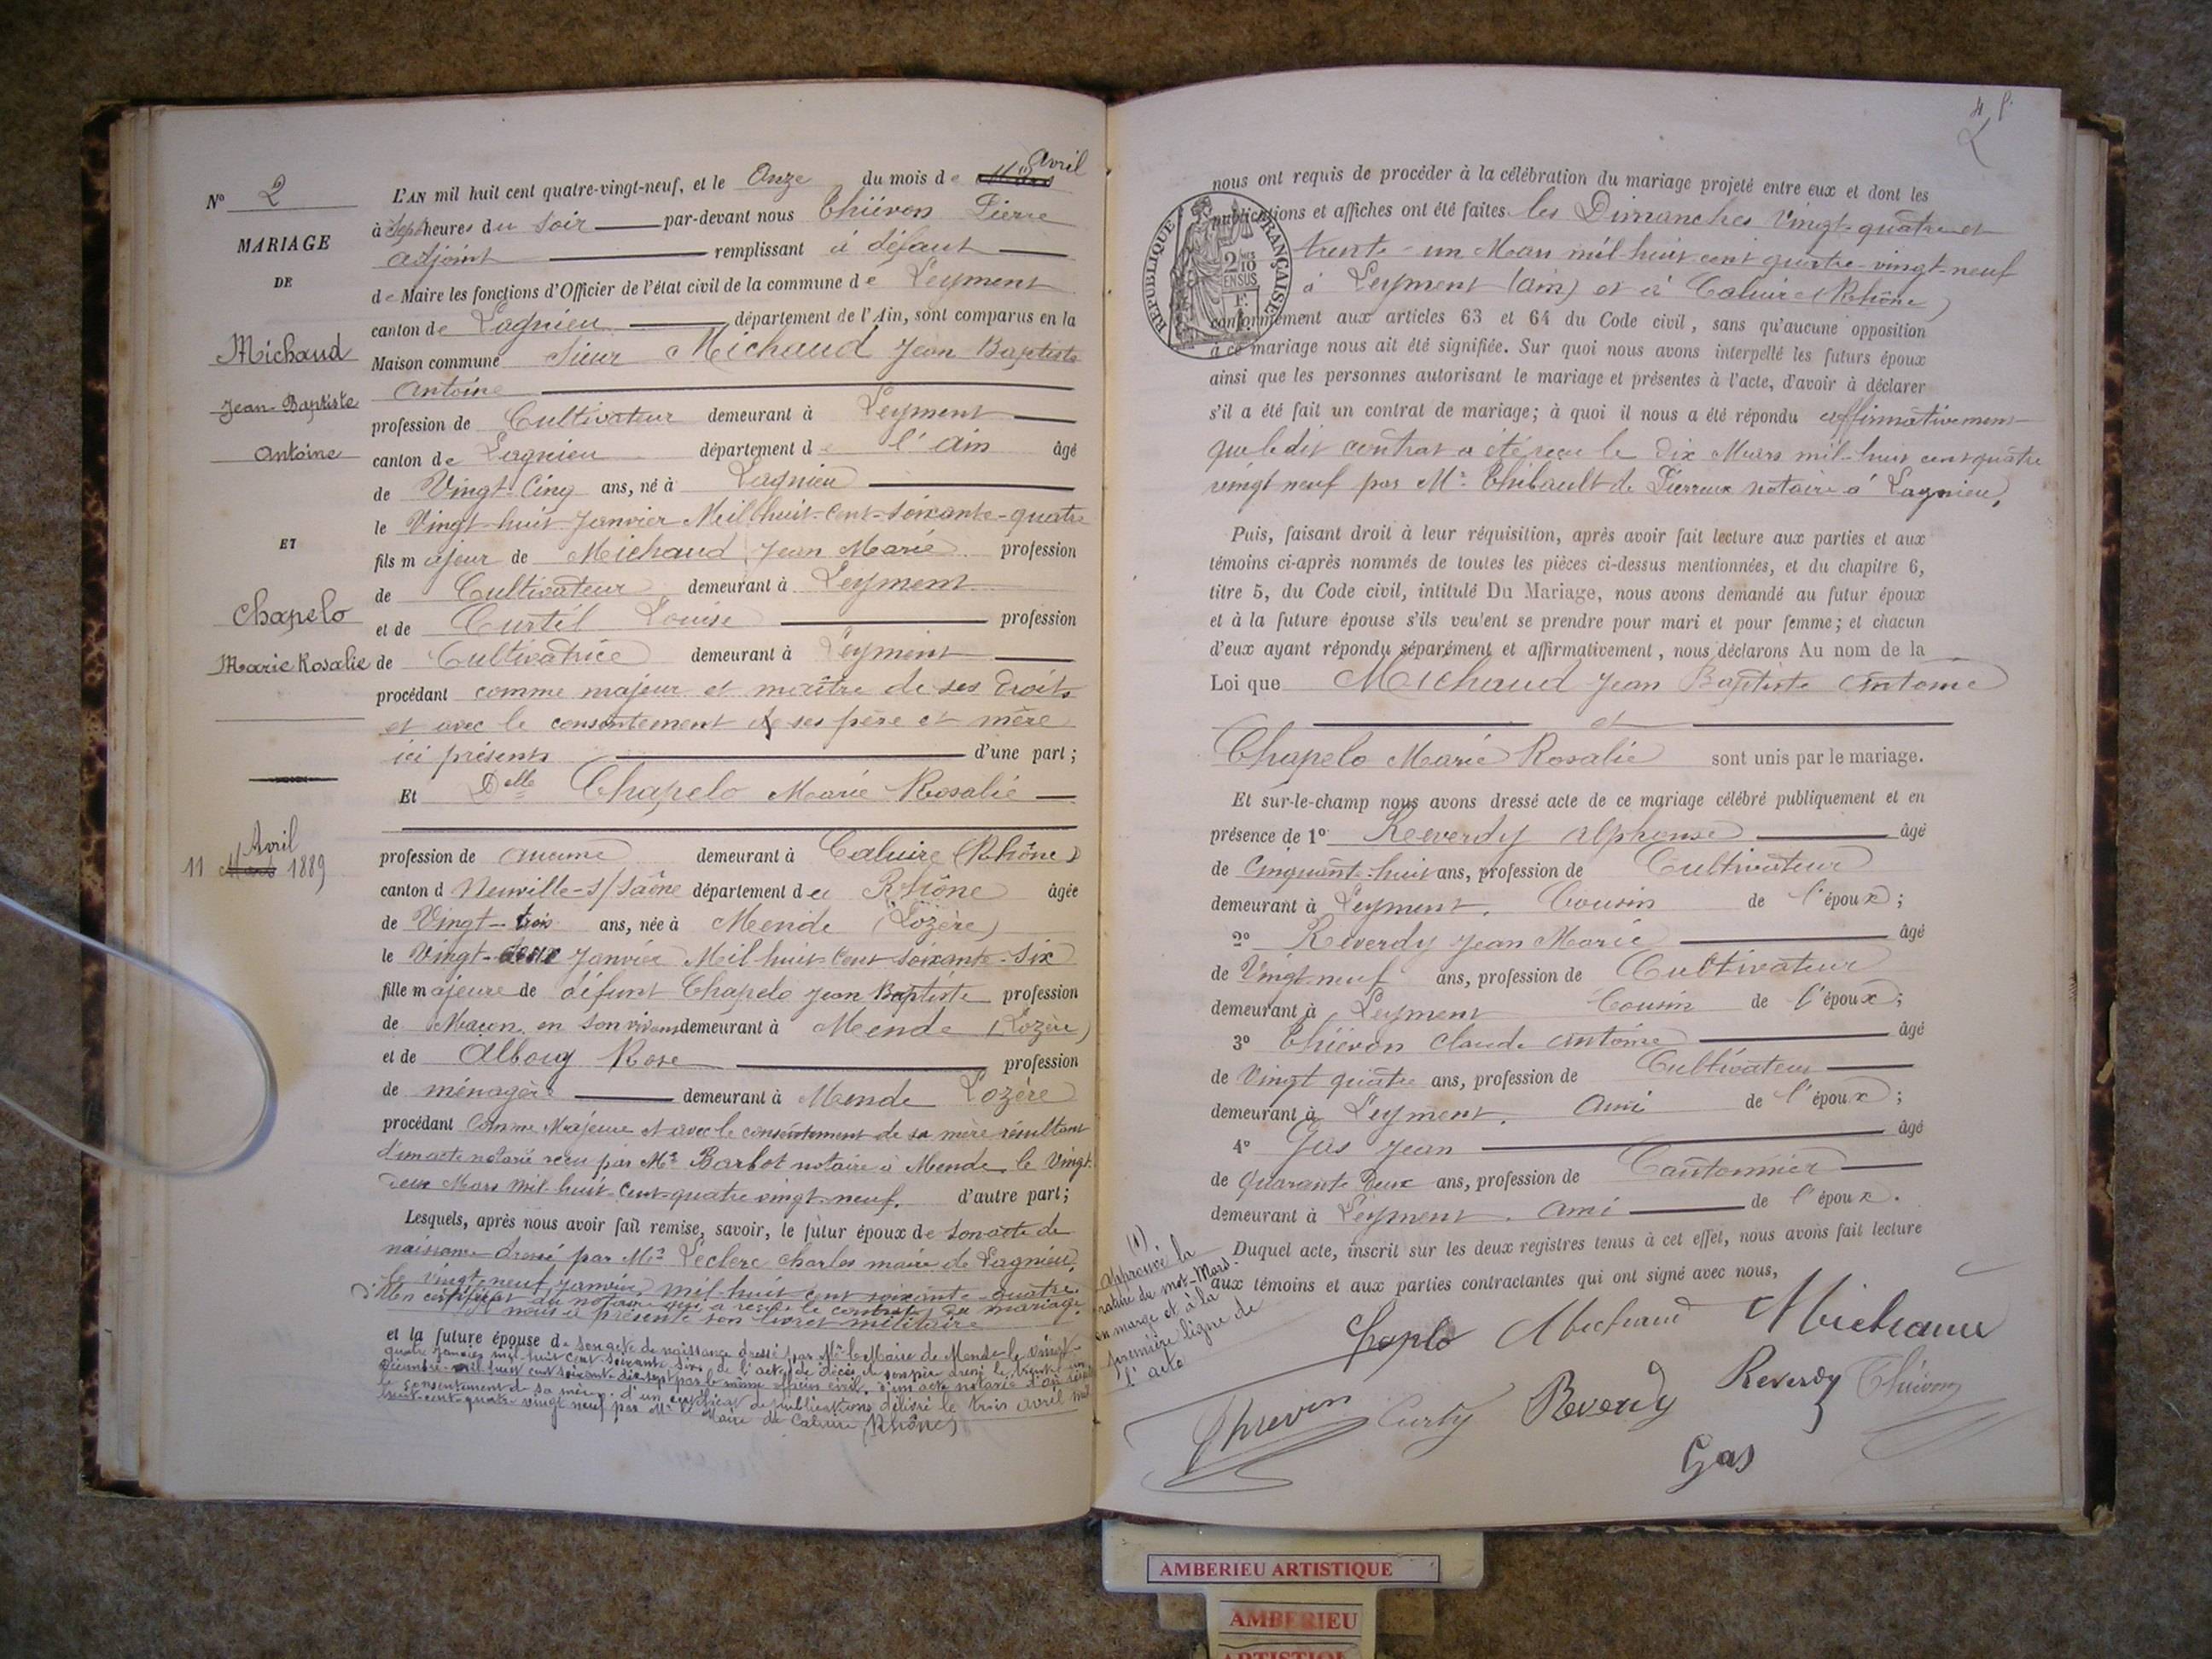 N° 2
MARIAGE
DE
Michaud
Jean-Baptiste
Antoine
ET
Chapelo
Marie Rosalie
Avril
11 Mars 1889
Avril
L'AN mil huit cent quatre-vingt-neuf, et le Onze du mois de Mars
à Sept heures du soir par-devant nous Thiévon Pierre
adjoint remplissant à défaut
de Maire les fonctions d'Officier de l'état civil de la commune de Leyment
canton de Lagnieu département de l'Ain, sont comparus en la
Maison commune Sieur Michaud Jean Baptiste
Antoine
profession de Cultivateur demeurant à Leyment
canton de Lagnieu département de l'Ain âgé
de Vingt-Cinq ans, né à Lagnieu
le Vingt-huit Janvier Mil huit-cent-soixante-quatre
fils majeur de Michaud Jean Marie profession
de Cultivateur demeurant à Leyment
et de Curtil Louise profession
de Cultivatrice demeurant à Leyment
procédant comme majeur et maître de ses droits
et avec le consentement de ses père et mère
ici présents d'une part;
Et Delle Chapelo Marie Rosalie
profession de aucune demeurant à Caluire (Rhône)
canton d Neuville-s/Saône département du Rhône âgée
de Vingt-trois ans, née à Mende (Lozère)
le Vingt-deux Janvier Mil huit Cent soixante-six
fille majeure de défunt Chapelo Jean Baptiste profession
de Maçon en son vivant demeurant à Mende (Lozère)
et de Albouy Rose profession
de ménagère demeurant à Mende Lozère
procédant Comme Majeure et avec le consentement de sa mère résultant
d'un acte notarié reçu par Me Barbot notaire à Mende le Vingt
deux Mars mil-huit-Cent-quatre vingt-neuf. d'autre part;
Lesquels, après nous avoir fait remise, savoir, le futur époux de son acte de
naissance dressé par Mr Leclerc Charles maire de Lagnieu,
le vingt-neuf Janvier mil-huit cent soixante-quatre.
d'un certificat du notaire qui a reçu le contrat de mariage.
nous a présenté son livret militaire
et la future épouse de son acte de naissance dressé par Mr le Maire de Mende le vingt-
quatre Janvier mil-huit cent-soixante six, de l'acte de décès de son père dressé le trente un
Décembre mil huit cent soixante dix sept par le même officier civil, d'un acte notarié d'où résulte
le consentement de sa mère, d'un certificat de publications délivré le trois avril mil
huit-cent-quatre vingt neuf par Mr le Maire de Caluire (Rhône)
4 f.
2
nous ont requis de procéder à la célébration du mariage projeté entre eux et dont les
publications et affiches ont été faites les Dimanches Vingt quatre et
trente-un Mars mil-huit cent quatre-vingt-neuf
à Leyment (ain) et à Caluire (Rhône)
conformément aux articles 63 et 64 du Code civil, sans qu'aucune opposition
à ce mariage nous ait été signifiée. Sur quoi nous avons interpellé les futurs époux
ainsi que les personnes autorisant le mariage et présentes à l'acte, d'avoir à déclarer
s'il a été fait un contrat de mariage; à quoi il nous a été répondu affirmativement
que le dit contrat a été reçu le dix Mars mil-huit cent quatre
vingt neuf par Me Thibault de notaire à Lagnieu.
RÉPUBLIQUE FRANÇAISE
2 10
EN SUS
Puis, faisant droit à leur réquisition, après avoir fait lecture aux parties et aux
témoins ci-après nommés de toutes les pièces ci-dessus mentionnées, et du chapitre 6,
titre 5, du Code civil, intitulé Du Mariage, nous avons demandé au futur époux
et à la future épouse s'ils veulent se prendre pour mari et pour femme; et chacun
d'eux ayant répondu séparément et affirmativement, nous déclarons Au nom de la
Loi que Michaud Jean Baptiste Antoine
et
Chapelo Marie Rosalie sont unis par le mariage.
Et sur-le-champ nous avons dressé acte de ce mariage célébré publiquement et en
présence de 1° Reverdy Alphonse âgé
de Cinquante-huit ans, profession de Cultivateur
demeurant à Leyment, Cousin de l'époux;
2° Reverdy Jean Marie âgé
de Vingt neuf ans, profession de Cultivateur
demeurant à Leyment Cousin de l'époux;
3° Thiévon Claude Antoine âgé
de Vingt quatre ans, profession de Cultivateur
demeurant à Leyment, Ami de l'époux;
4° Gas Jean âgé
de Quarante deux ans, profession de Cantonnier
demeurant à Leyment, Ami de l'époux.
Duquel acte, inscrit sur les deux registres tenus à cet effet, nous avons fait lecture
aux témoins et aux parties contractantes qui ont signé avec nous,
(1)
Approuvé la
rature du mot-Mars-
en marge et à la
première ligne de
l'acte
Chaplo Michaud Michaud
Thievon Curty Reverdy Reverdy Thiévon
Gas
AMBERIEU ARTISTIQUE
AMBERIEU
ARTISTIQUE